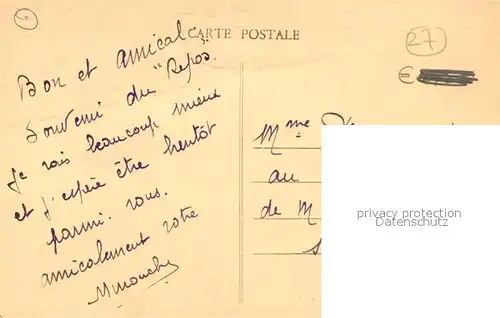 CARTE POSTALE
27
Bon et amical
Souvenir du "Repos".
Je vais beaucoup mieux
et j'espère être bientôt
parmi vous.
amicalement votre
Mme
au
de M
privacy protection
Datenschutz